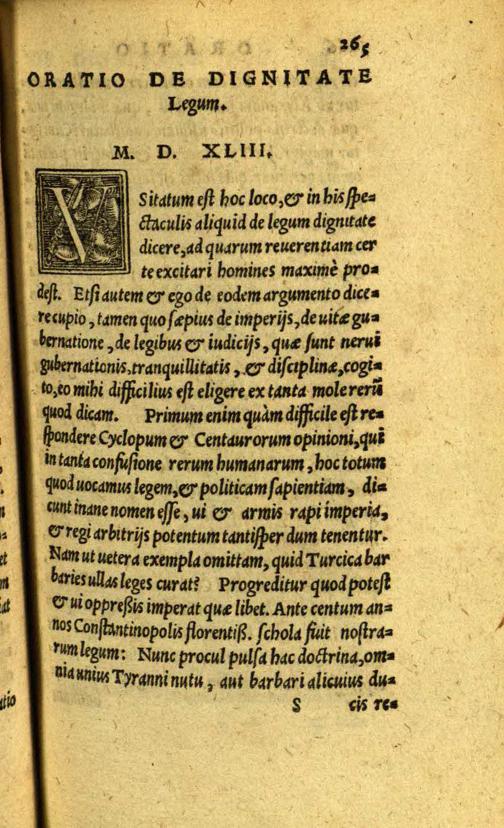 265
ORATIO DE DIGNITATE
Legum.
M. D. XLIII.
VSitatum est hoc loco, & in his spe-
ctaculis aliquid de legum dignitate
dicere, ad quarum reuerentiam cer
te excitari homines maximè pro-
dest. Etsi autem & ego de eodem argumento dice-
re cupio, tamen quo sæpius de imperijs, de uitæ gu-
bernatione, de legibus & iudicijs, quæ sunt nerui
gubernationis, tranquillitatis, & disciplinæ, cogi-
to, eo mihi difficilius est eligere ex tanta mole rerũ
quod dicam. Primum enim quàm difficile est re-
spondere Cyclopum & Centaurorum opinioni, qui
in tanta confusione rerum humanarum, hoc totum
quod uocamus legem, & politicam sapientiam, di-
cunt inane nomen esse, ui & armis rapi imperia,
& regi arbitrijs potentum tantisper dum tenentur.
Nam ut uetera exempla omittam, quid Turcica bar
baries ullas leges curat? Progreditur quod potest
& ui oppreßis imperat quæ libet. Ante centum an-
nos Constantinopolis florentiß. schola fuit nostra-
rum legum: Nunc procul pulsa hac doctrina, om-
nia unius Tyranni nutu, aut barbari alicuius du-
S cis re-